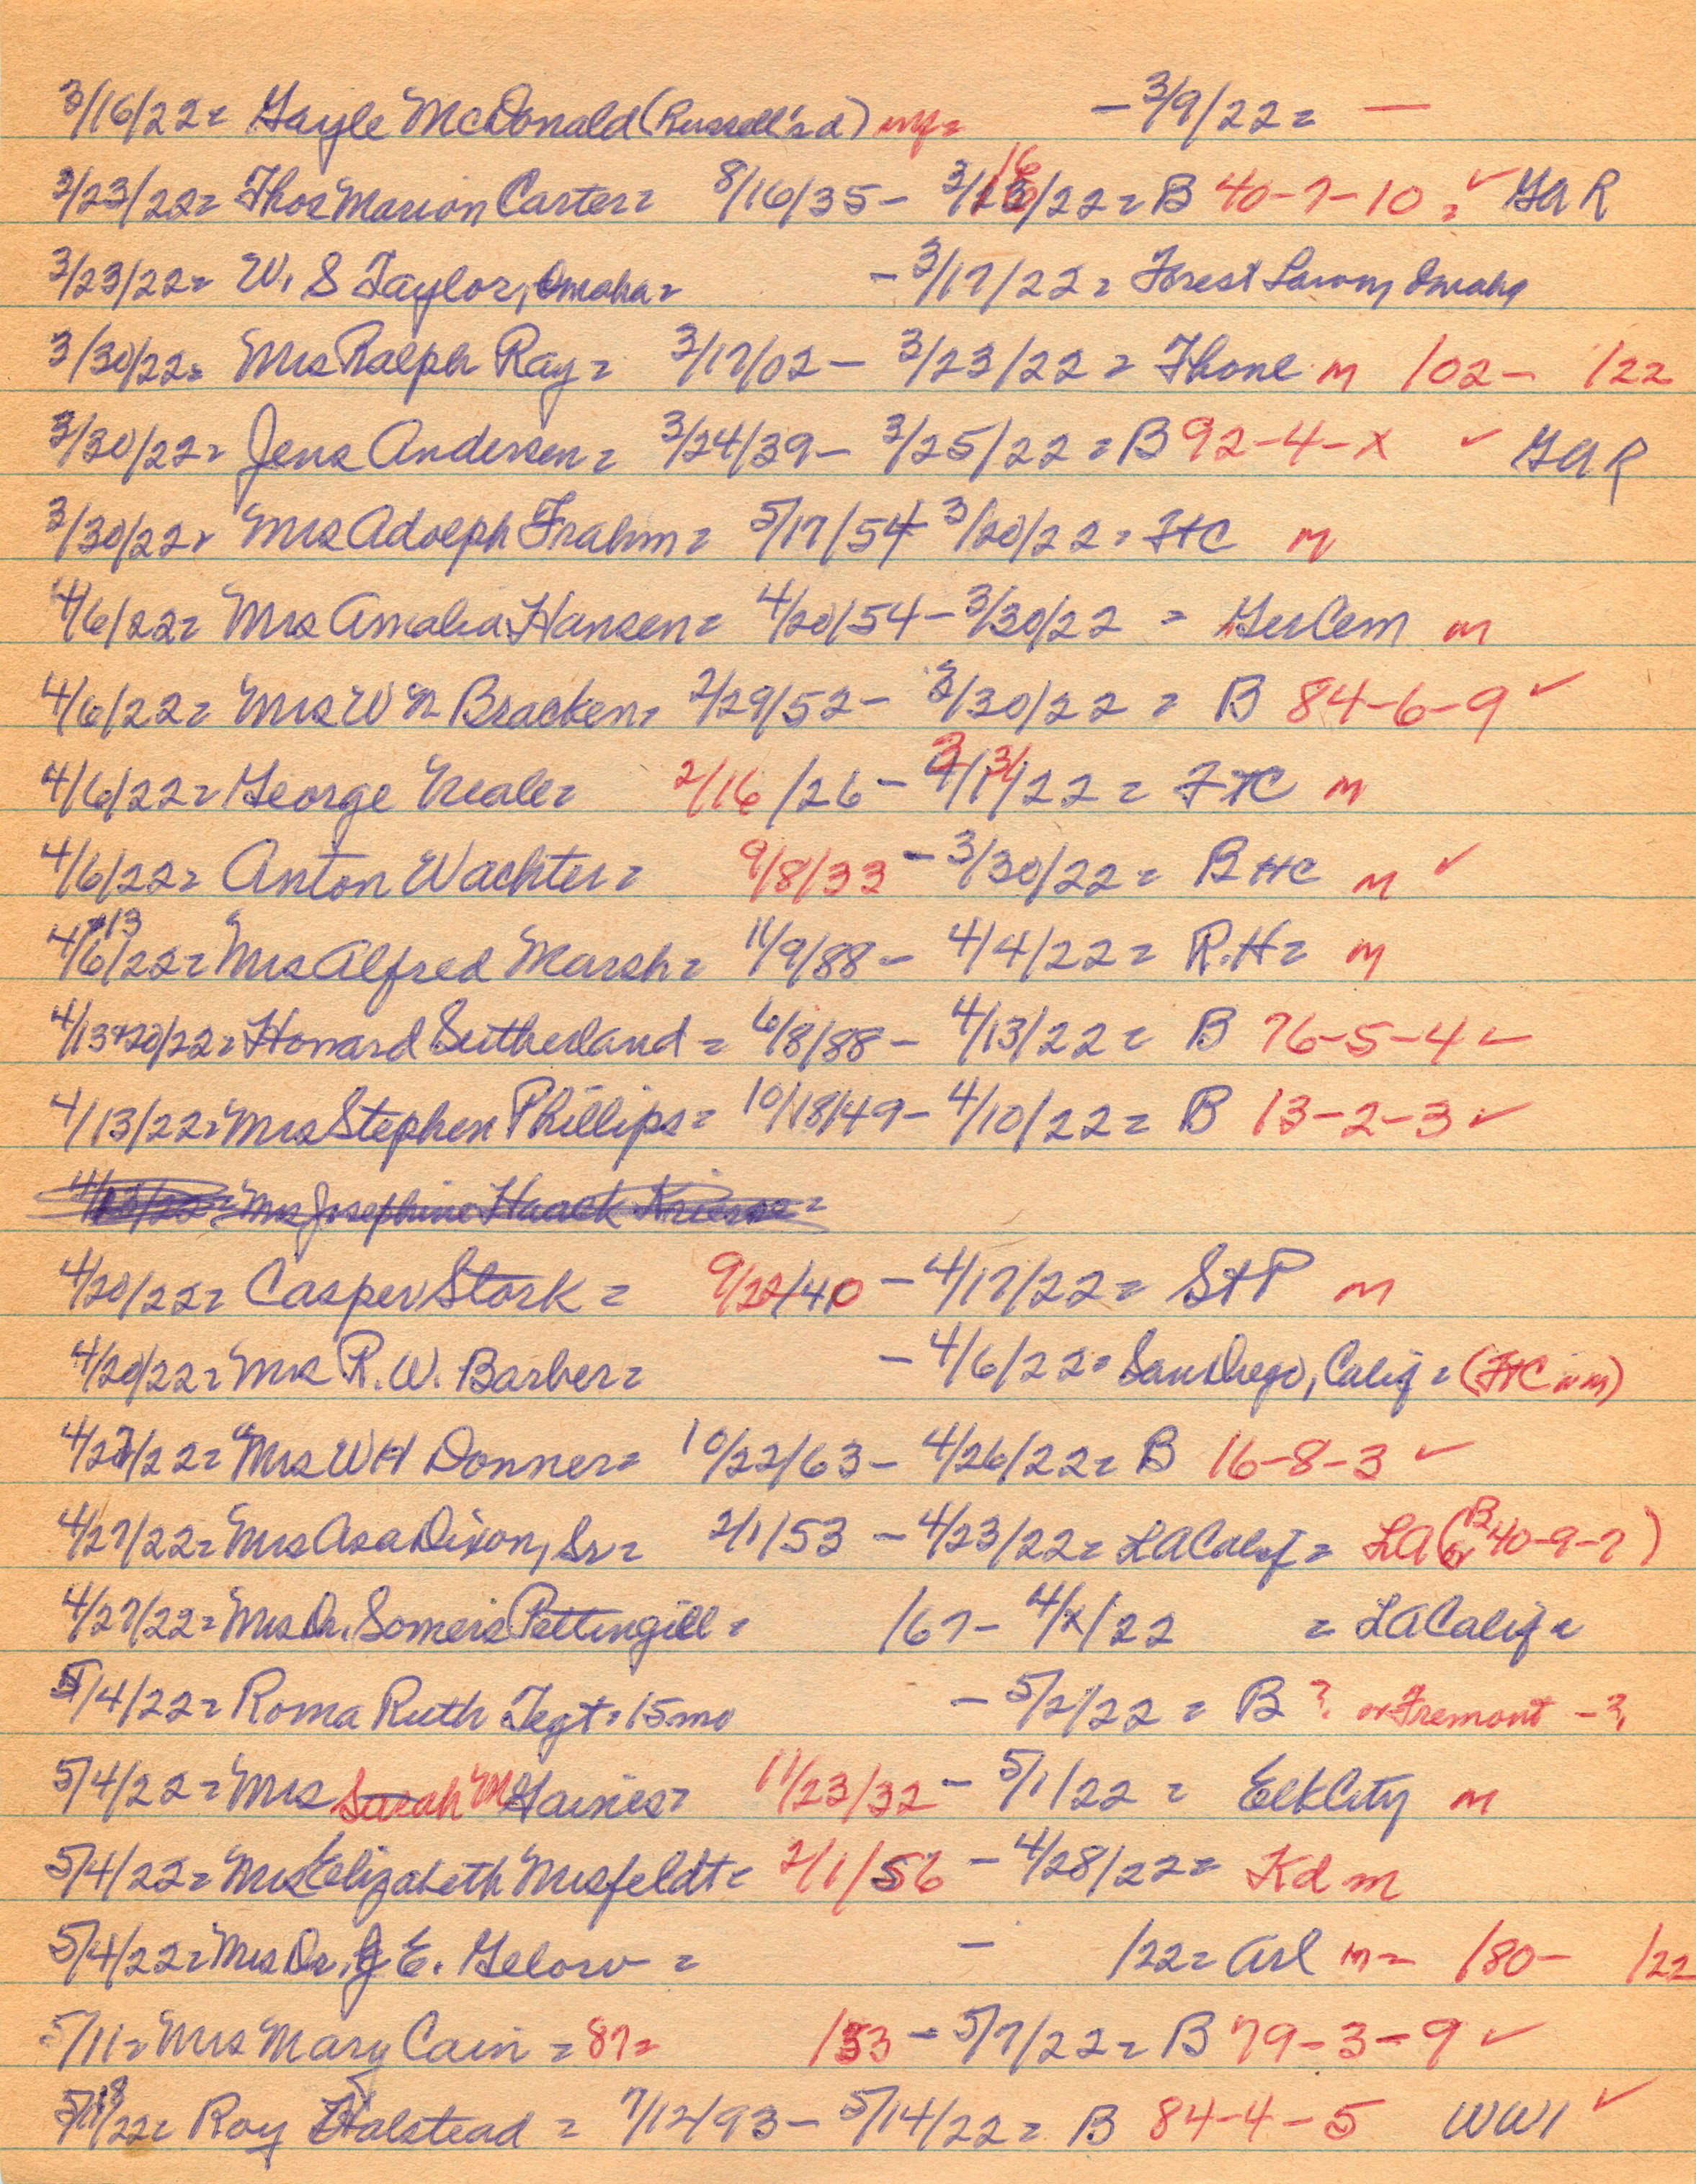 3/16/22= Gayle McDonald (Russell's d) - 3/9/22= —
3/23/22= Thos Marion Carter= 8/16/35- 3/16/22= B 40-7-10= ✓ GAR
3/23/22= W. S Taylor, Omaha= - 3/17/22= Forest Lawn, Omaha
3/30/22= Mrs Ralph Ray= 3/17/02- 3/23/22= Fhone m /02- /22
3/30/22= Jens Andersen= 3/24/39- 3/25/22= B 92-4-x ✓ GAR
3/30/22= Mrs Adolph Frahm= 5/17/54 3/20/22= FHC m
4/6/22= Mrs Amalia Hansen= 4/20/54- 3/30/22 = GerCem m
4/6/22= Mrs Wm Bracken= 2/29/52- 3/30/22 = B 84-6-9 ✓
4/6/22= George Neale= 2/16/26- 3/31/22= FHC m
4/6/22= Anton Wachter= 9/8/33 - 3/30/22= B HC m ✓
4/6+13/22= Mrs Alfred Marsh= 11/9/88- 4/4/22= R.H= m
4/13+20/22= Howard Sutherland= 6/8/88- 4/13/22= B 76-5-4 ✓
4/13/22= Mrs Stephen Phillips= 10/18/49- 4/10/22= B 13-2-3 ✓
4/13/22= Mrs Josephine Haack
4/20/22= Casper Stork= 9/22/40 - 4/17/22= StP m
4/20/22= R. W. Barber= - 4/6/22= San Diego, Calif= (FHC m)
4/27/22= Mrs WH Donner= 10/22/63- 4/26/22= B 16-8-3 ✓
4/27/22= Mrs Asa Dixon, Sr= 2/1/53 - 4/23/22= LA Calif= LA (or B 40-9-7)
4/27/22= Mrs Dr. Somers Pettingill= /67- 4/x/22 = LA Calif=
5/4/22= Roma Ruth Tegt= 15mo - 5/2/22= B ? or Fremont -?
5/4/22= Mrs Sarah M Gaines= 11/23/32 - 5/1/22= Elk City m
5/4/22= Mrs Elizabeth Misfeldt= 2/1/56 - 4/28/22= Kd m
5/4/22= Mrs Dr. J E. Gelow= - /22= Arl m= /80- /22
5/11= Mrs Mary Cain= 87= /33 - 5/7/22= B 79-3-9 ✓
5/18/22= Roy Halstead= 7/12/93- 5/14/22= B 84-4-5 WW1 ✓